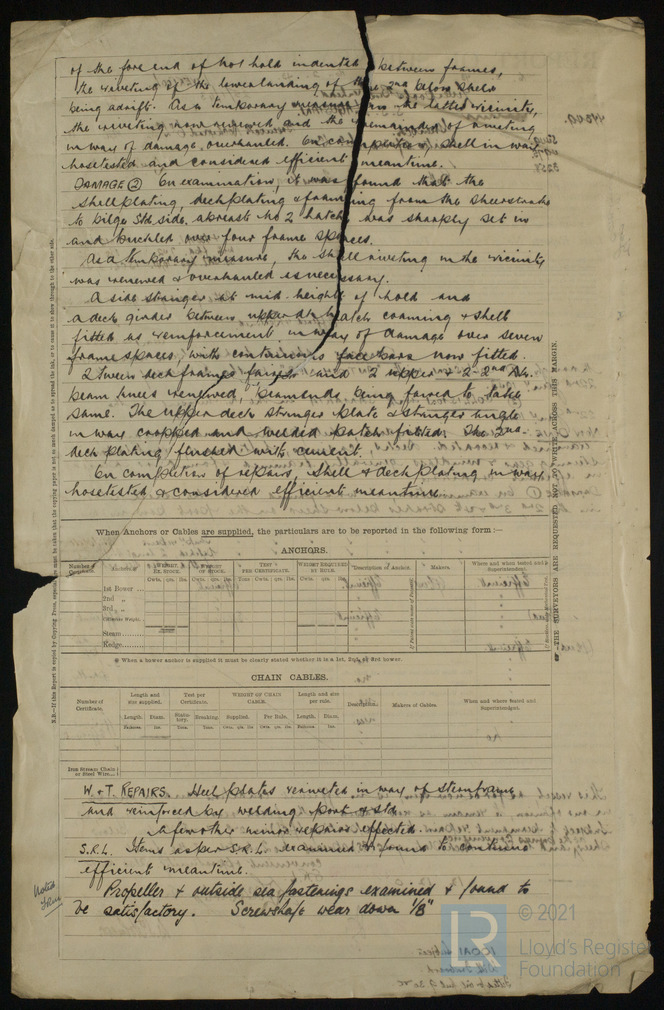 of the fore end of No1 hold indented between frames,
the riveting of the lower landing of the 2nd below sheer
being adrift. As a temporary measure in the latter vicinity,
the riveting now renewed and the remainder of riveting
in way of damage overhauled. On completion shell in way
hosetested and considered efficient meantime.
DAMAGE (2) On examination, it was found that the
shell plating, deck plating & framing from the sheerstrake
to bilge Stbd side, abreast No 2 hatch was sharply set in
and buckled over four frame spaces.
As a temporary measure, the shell riveting in the vicinity
was renewed & overhauled as necessary.
A side stringer at mid. height of hold and
a deck girder between upper dk hatch coaming & shell
fitted as reinforcement in way of damage over seven
frame spaces, with continuous face bars now fitted.
2 tween deck frames faired and 2 upper & 2-2nd dk.
beam knees renewed, beam ends being faired to take
same. The upper deck stringer plate & stringer angle
in way cropped and welded patch fitted. The 2nd
deck plating flushed with cement.
On completion of repairs, shell & deck plating in way,
hosetested & considered efficient meantime
When Anchors or Cables are supplied, the particulars are to be reported in the following form :—
ANCHORS.
Number of Certificate. WEIGHT, EX. STOCK. WEIGHT OF STOCK. TEST PER CERTIFICATE. WEIGHT REQUIRED BY RULE. Description of Anchor. Makers. Where and when tested and Superintendent.
Cwts. qrs. lbs. Cwts. qrs. lbs. Cwts. qrs. lbs. Cwts. qrs. lbs.
1st Bower ...
2nd „
3rd „
Stream
Kedge
* When a bower anchor is supplied it must be clearly stated whether it is a 1st, 2nd, or 3rd bower.
CHAIN CABLES.
Number of Certificate. Length and size supplied. Test per Certificate. WEIGHT OF CHAIN CABLE. Length and size per rule. Description. Makers of Cables. Where and when tested and Superintendent.
Length. Diam. Statutory. Breaking. Supplied. Per Rule. Length. Diam.
Iron Stream Chain or Steel Wire...
W. & T. REPAIRS. Heel plates renewed in way of sternframe
and reinforced by welding port & stbd
A few other minor repairs effected.
S.R.L. Items as per S.R.L. examined & found to continue
efficient meantime.
Propeller & outside sea fastenings examined & found to
be satisfactory. Screwshaft wear down 1/8"
Noted
THE SURVEYORS ARE REQUESTED NOT TO WRITE ACROSS THIS MARGIN.
LR
© 2021
Lloyd's Register
Foundation